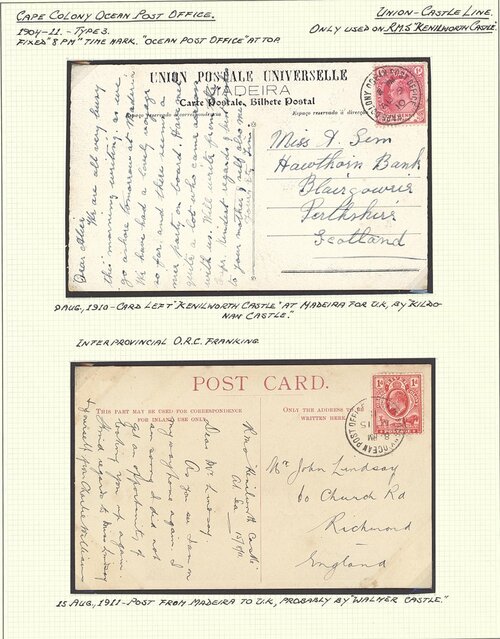 CAPE COLONY OCEAN POST OFFICE.
UNION-CASTLE LINE.
1904-11. - TYPE 3.
ONLY USED ON R.M.S "KENILWORTH CASTLE"
FIXED "8 PM" TIME MARK. "OCEAN POST OFFICE" AT TOP
UNION POSTALE UNIVERSELLE
MADEIRA
Carte Postale, Bilhete Postal
Espaço reservado á correspondencia
Espaço reservado á direcção
Dear Alice,
We are all very busy
this morning writing as we
go ashore tomorrow at Madeira
We have had a lovely voyage
so far and there
party on board.
quite a lot who
with us. Will write
kindest regards
to your mother & self
Miss A Sim
Hawthorn Bank
Blairgowrie
Perthshire
Scotland
CAPE COLONY OCEAN POST OFFICE
9 AUG, 1910 - CARD LEFT "KENILWORTH CASTLE" AT MADEIRA FOR U.K, BY "KILDO-
NAN CASTLE."
INTERPROVINCIAL O.R.C. FRANKING
POST CARD.
THIS PART MAY BE USED FOR CORRESPONDENCE
FOR INLAND USE ONLY.
ONLY THE ADDRESS TO BE
WRITTEN HERE.
RMS Kenilworth Castle
At Sea
15/8/11
Dear Mr Lindsay
As you see I am on
my way home again. I
am sorry I did not
get an opportunity of
looking you up again.
Kind regards to Miss Lindsay
& yourself from Charlie William
OCEAN POST OFFICE
Mr John Lindsay
60 Church Rd
Richmond
England
15 AUG, 1911 - POST FROM MADEIRA TO U.K, PROBABLY BY "WALMER CASTLE."